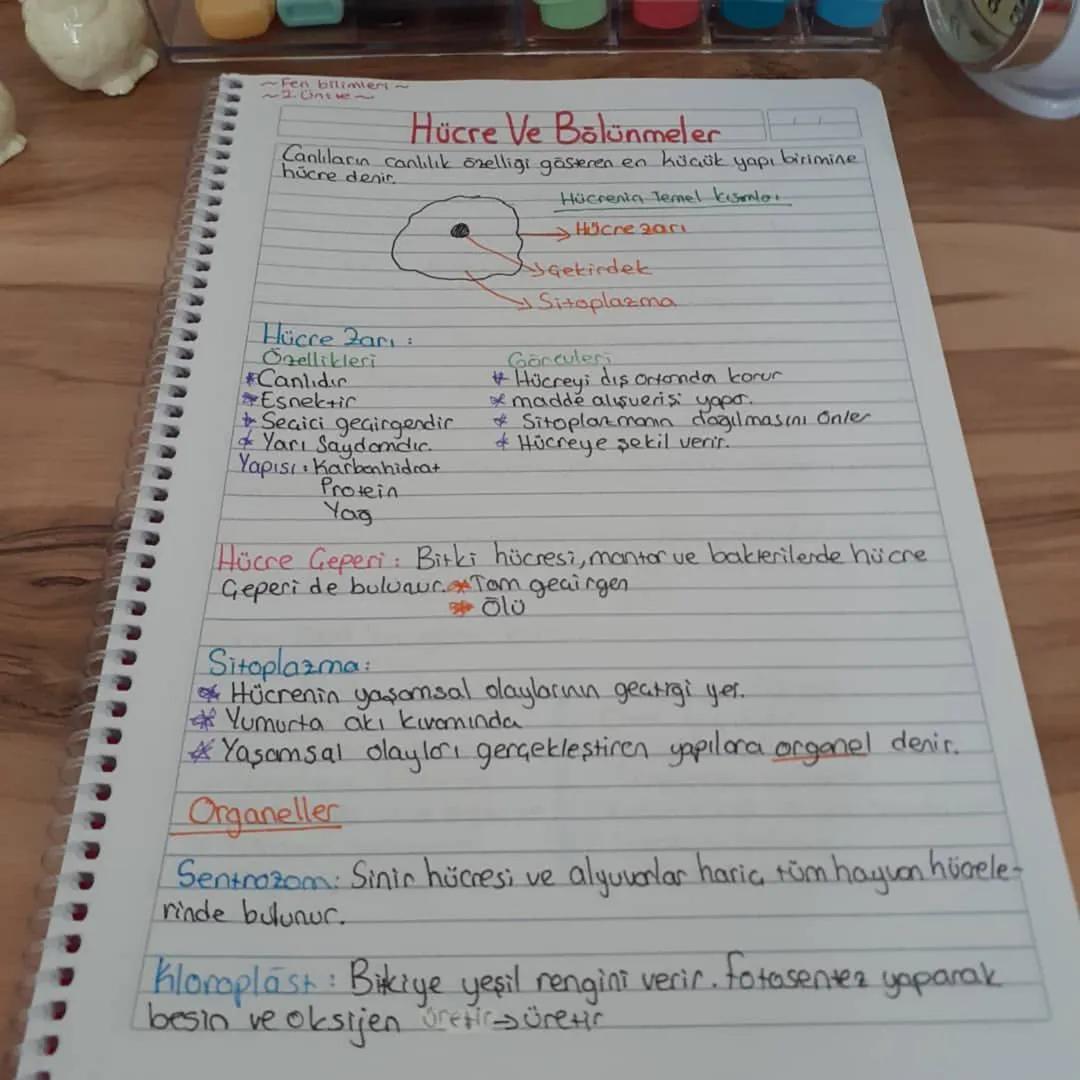 ~Fen bilimleri~
~2. Ünite~
Hücre Ve Bölünmeler
Canlıların canlılık özelliği gösteren en küçük yapı birimine
hücre denir.
Hücrenin Temel kısımları
Hücre zarı
Çekirdek
Sitoplazma
Hücre Zarı :
Özellikleri
Görevleri
*Canlıdır
* Hücreyi dış ortamda korur
*Esnektir
* madde alışverişi yapar.
* Seçici geçirgendir
* Sitoplazmanın dağılmasını önler
* Yarı Saydamdır.
* Hücreye şekil verir.
Yapısı : Karbonhidrat
Protein
Yağ
Hücre Çeperi : Bitki hücresi, mantar ve bakterilerde hücre
Çeperi de bulunur. * Tam geçirgen
* Ölü
Sitoplazma:
* Hücrenin yaşamsal olaylarının geçtiği yer.
* Yumurta akı kıvamında
* Yaşamsal olayları gerçekleştiren yapılara organel denir.
Organeller
Sentrozom: Sinir hücresi ve alyuvarlar hariç tüm hayvan hücrele-
rinde bulunur.
Kloroplast : Bikiye yeşil rengini verir. fotosentez yaparak
besin ve oksijen üretir→üretir